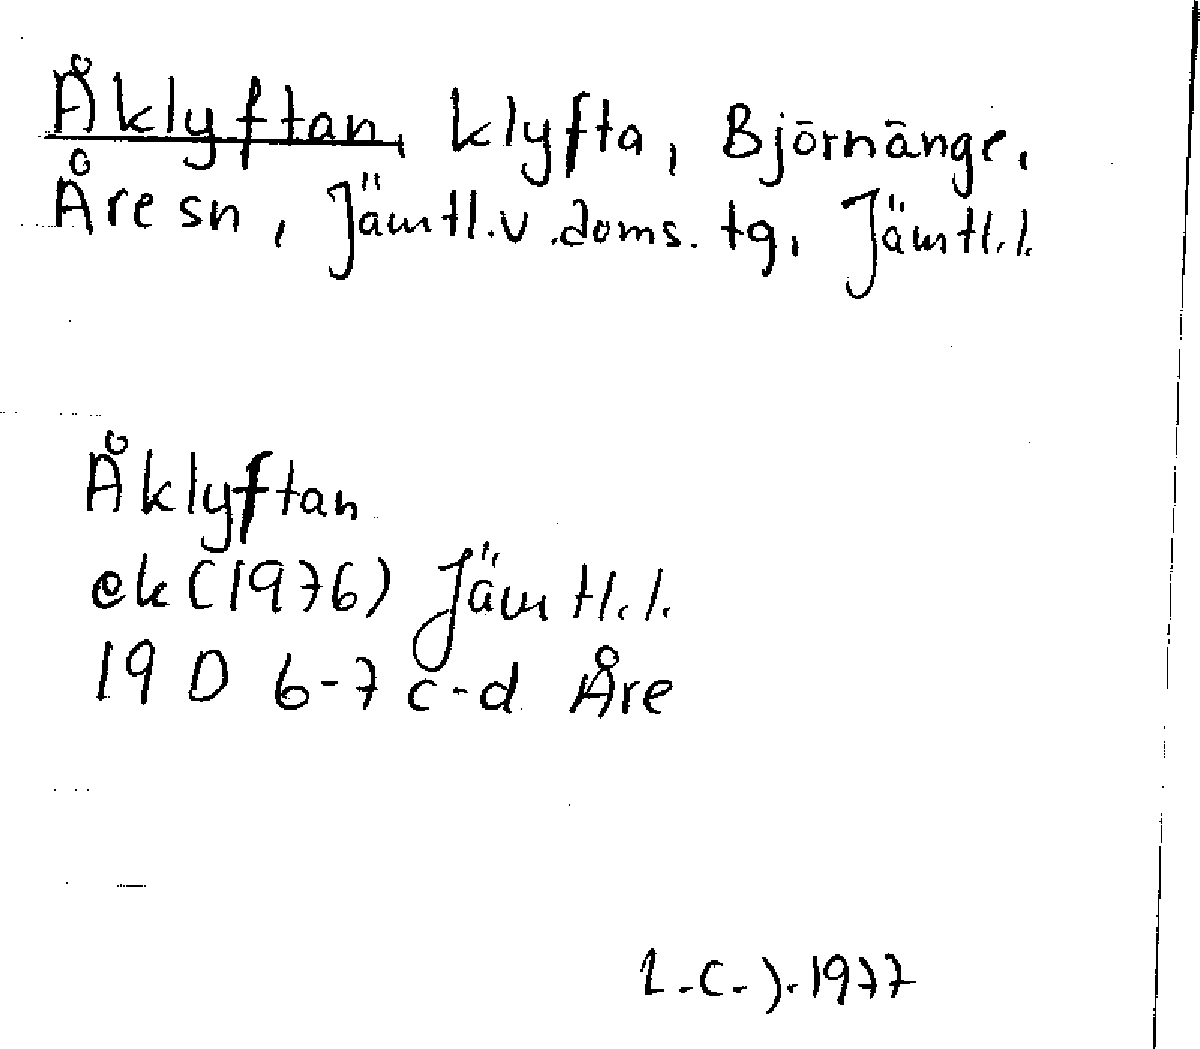 Åklyftan, klyfta, Björnänge,
Åre sn, Jämtl.v.doms.tg, Jämtl.l.
Åklyftan
ek (1976) Jämtl.l.
19 D 6-7 c-d Åre
1977